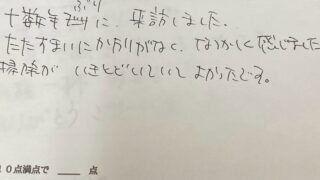 ぶり
十数年ぶりに、来訪しました。
たたずまいにかわりがなく、なつかしく感じました
掃除が いきとどいていて よかったです。
10点満点で ___ 点